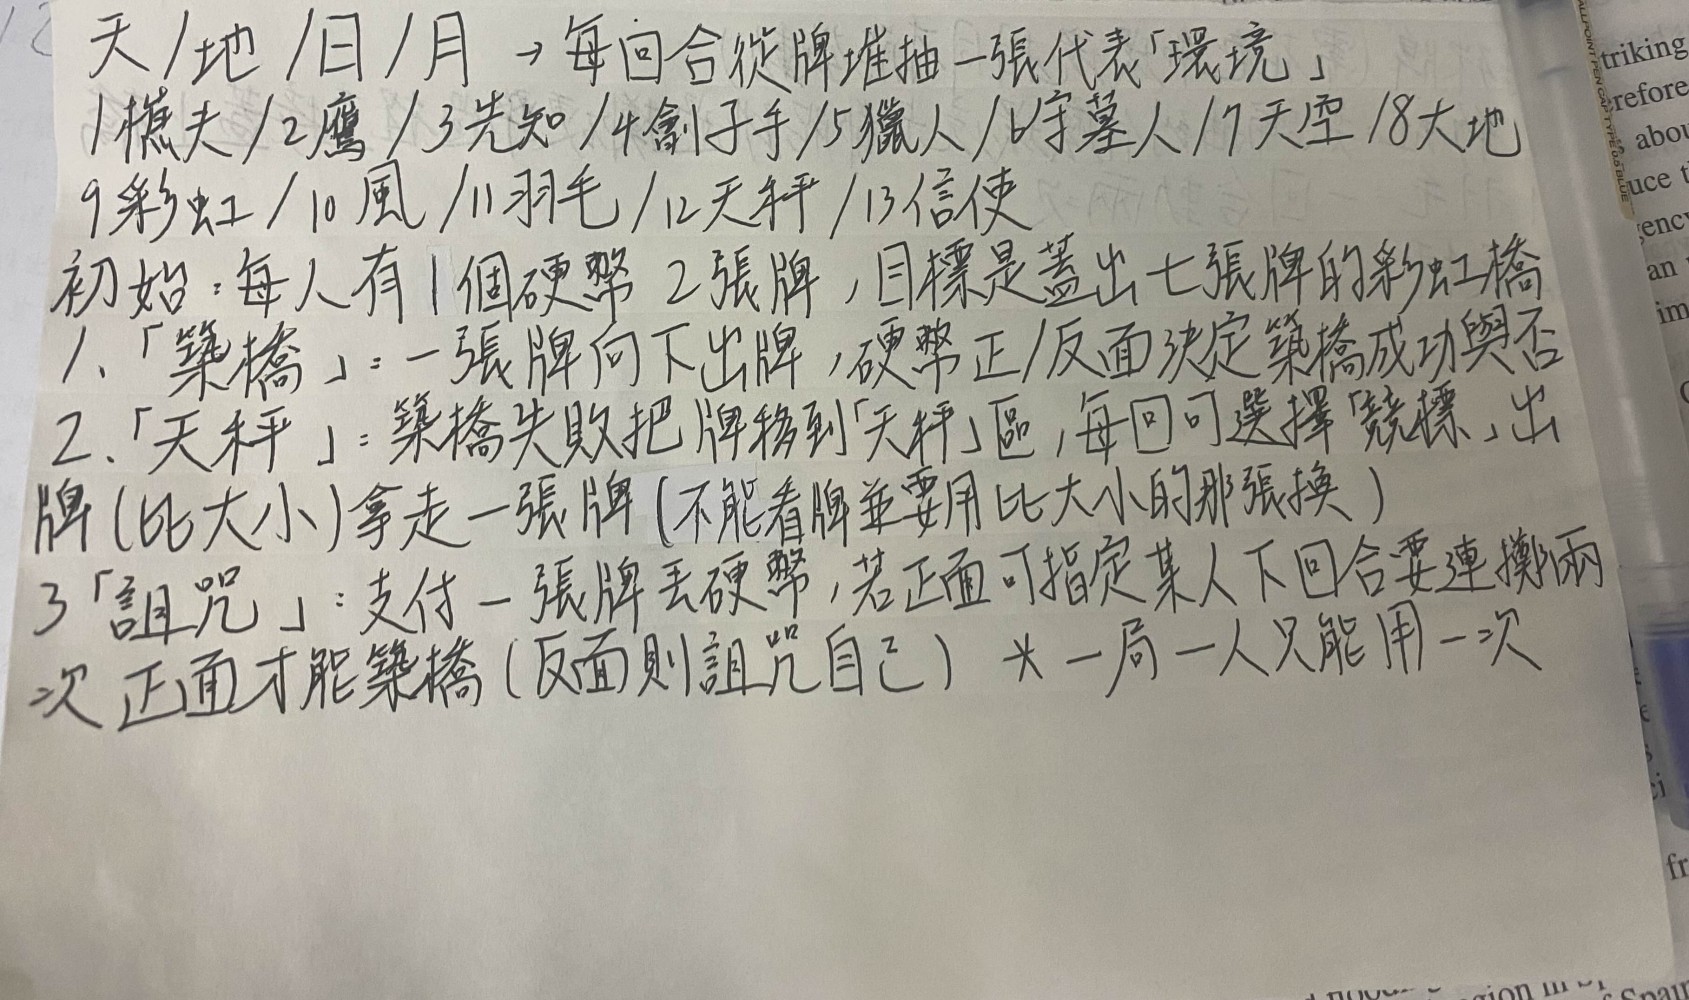 天/地/日/月 → 每回合從牌堆抽一張代表「環境」
1樵夫/2鷹/3先知/4劊子手/5獵人/6守墓人/7天空/8大地
9彩虹/10風/11羽毛/12天秤/13信使
初始:每人有1個硬幣 2張牌,目標是蓋出七張牌的彩虹橋
1、「築橋」:一張牌向下出牌,硬幣正/反面決定築橋成功與否
2、「天秤」:築橋失敗把牌移到「天秤」區,每回可選擇「競標」出
牌(比大小)拿走一張牌(不能看牌並要用比大小的那張換)
3「詛咒」:支付一張牌丟硬幣,若正面可指定某人下回合要連擲兩
次正面才能築橋(反面則詛咒自己) *一局一人只能用一次
triking
erefore
abou
uce t
gency
an
im
fr